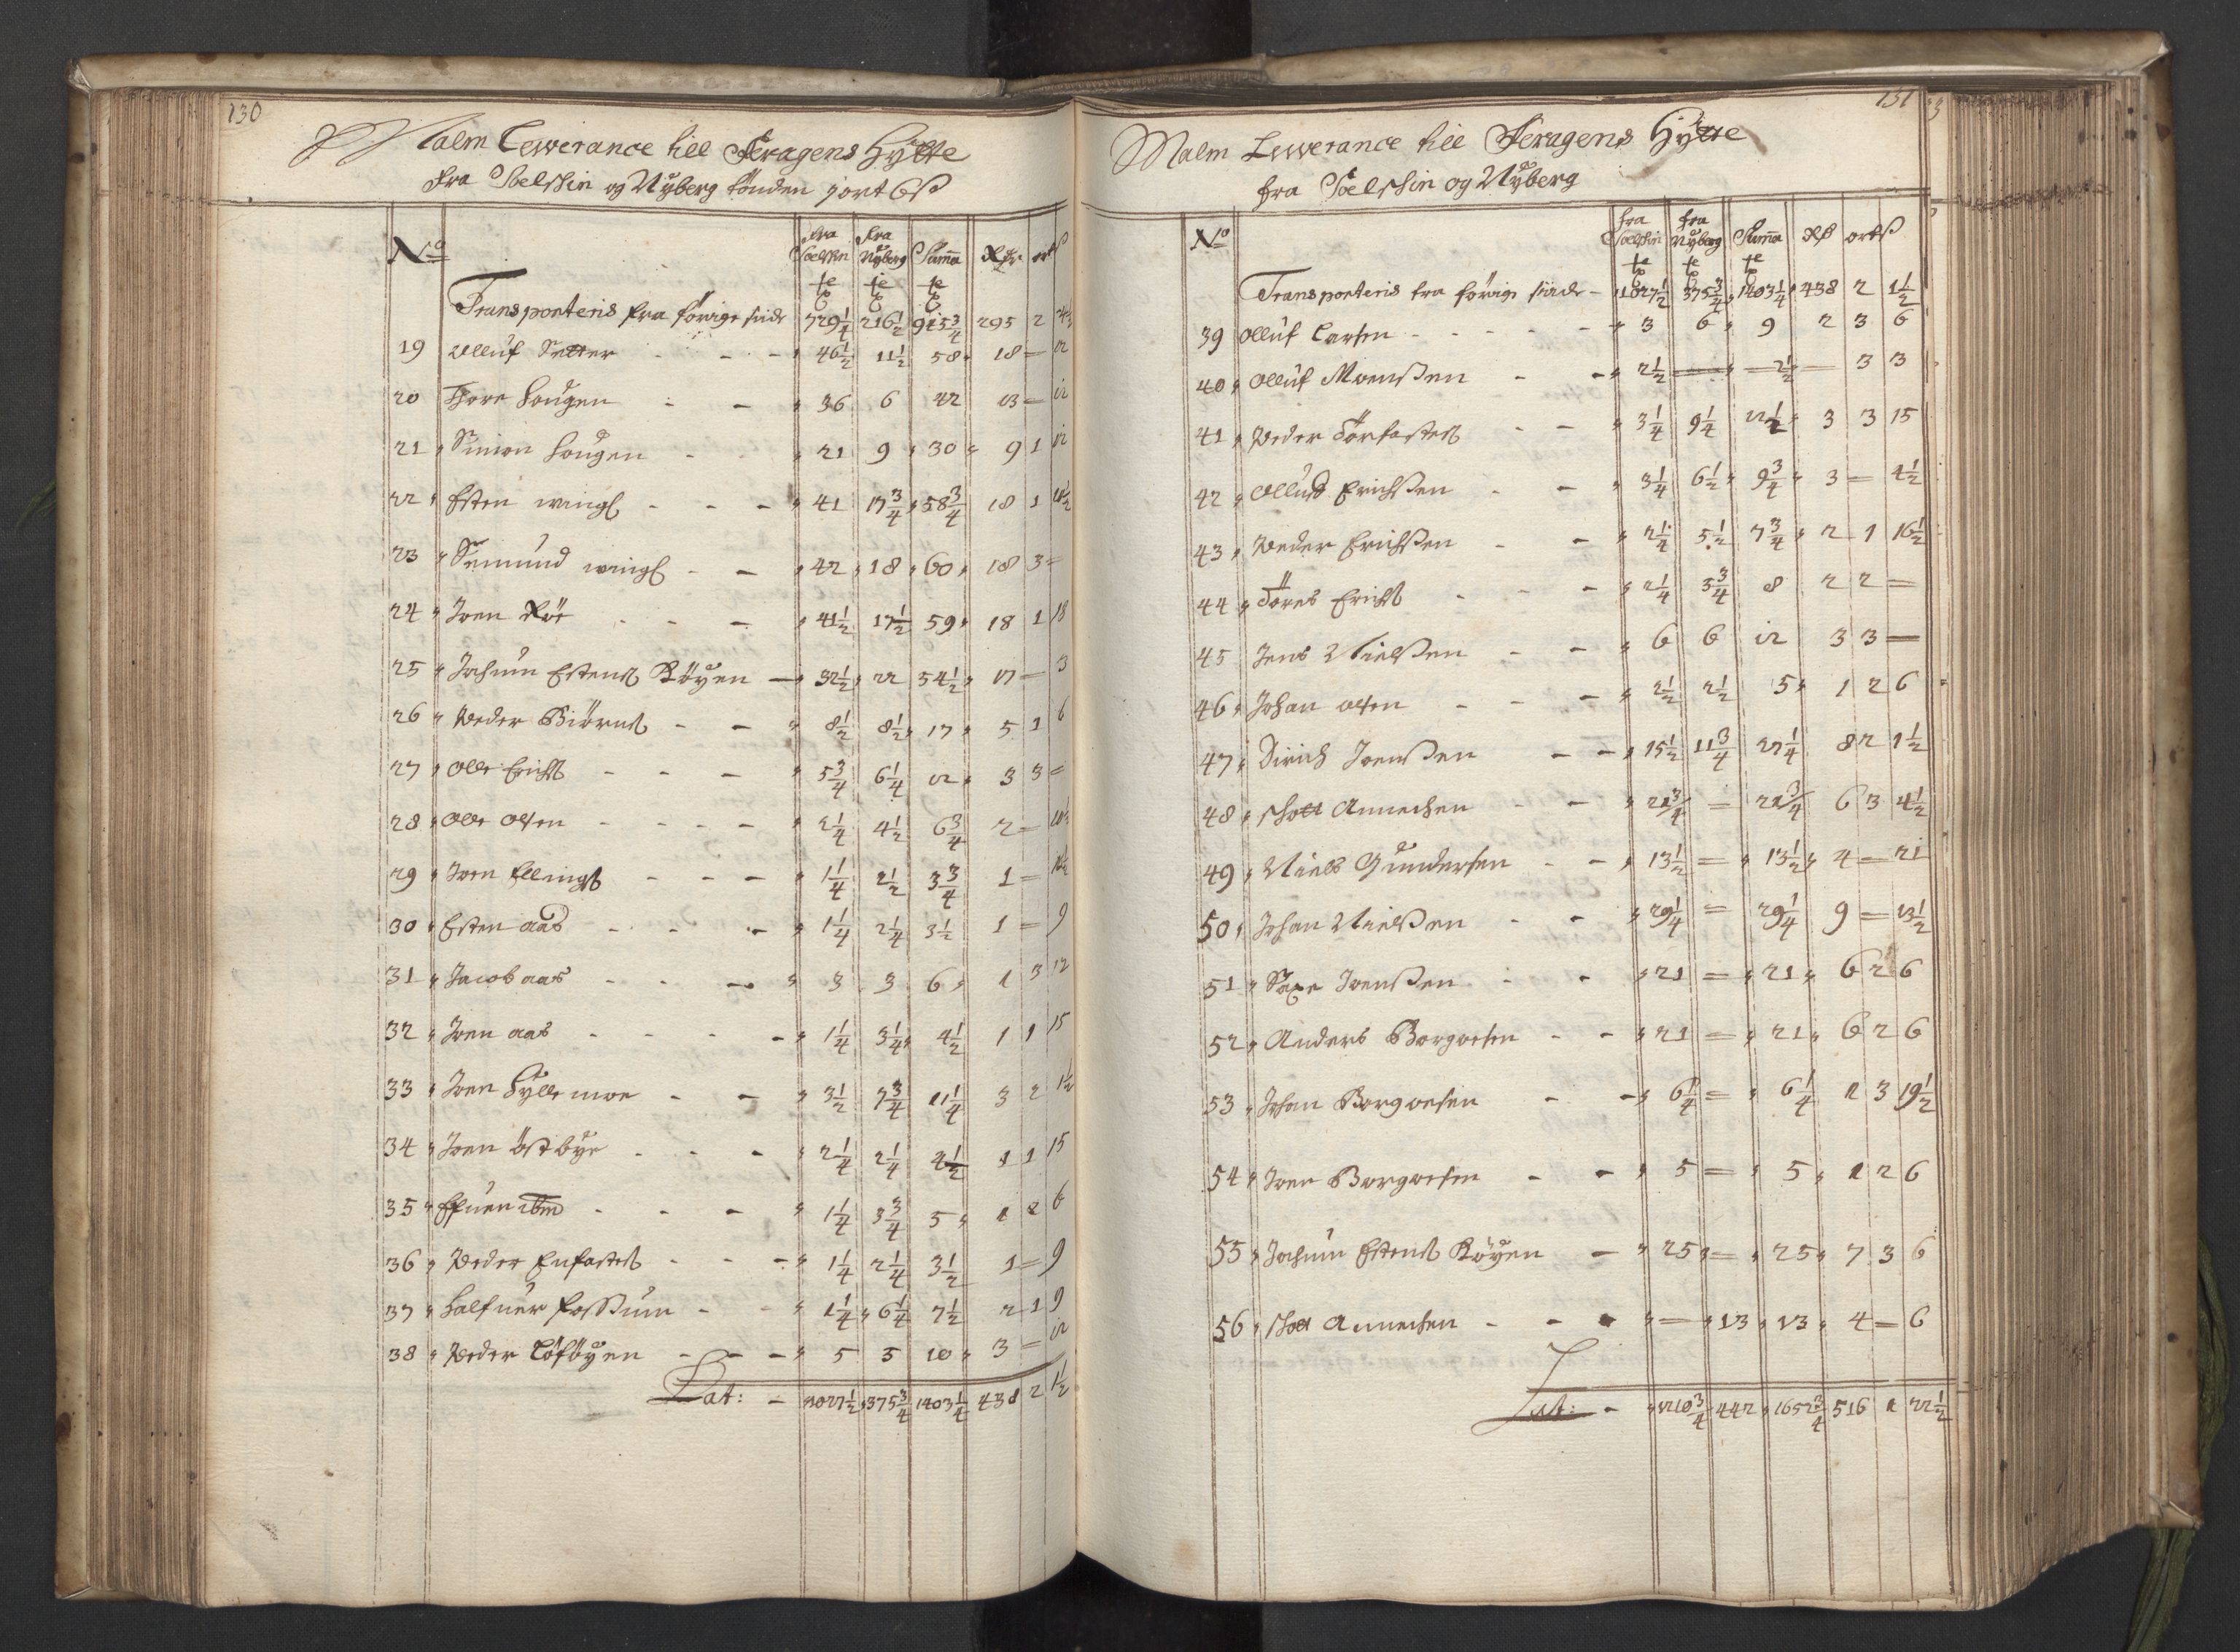 130
Malm Lewerance till Feragens Hÿtte
Fra Soelskin og Nÿberg tönden 1 ort 6 ß
No fra Soelskin fra Nÿberg Suma Rdr ort ß
Transporteris fra forrige siide 729 1/4 216 1/2 945 3/4 295 2
19 Olluf Setter - - - 46 1/2 11 1/2 58 18 = 12
20 Thore Hougen - - 36 6 42 13 = 12
21 Simon Hougen - 21 9 30 9 1 12
22 Esten wingl - - - 41 17 3/4 58 3/4 18 1 10 1/2
23 Semund wingl - - 42 18 60 18 3 =
24 Joen Röe - - - 41 1/2 17 1/2 59 18 1 18
25 Jochum Estens Röÿen - 32 1/2 22 54 1/2 17 = 3
26 Peder Biörns - - 8 1/2 8 1/2 17 5 1 6
27 Olle Erichs - - - 5 3/4 6 1/4 12 3 3 =
28 Olle Olsen - - - - 2 1/4 4 1/2 6 3/4 2 = 10 1/2
29 Joen Ellings - - - 1 1/4 2 1/2 3 3/4 1 = 16 1/2
30 Esten aas - - - 1 1/4 2 1/4 3 1/2 1 = 9
31 Jacob aas - - - 3 3 6 1 3 12
32 Joen aas - - - - 1 1/4 3 1/4 4 1/2 1 1 15
33 Joen Hÿllemoe - - 3 1/2 7 3/4 11 1/4 3 2 1 1/2
34 Joen östbÿe - - - 2 1/4 2 1/4 4 1/2 1 1 15
35 Efuen ibm - - - 1 1/4 3 3/4 5 1 2 6
36 Peder Enfastes - - - 1 1/4 2 1/4 3 1/2 1 = 9
37 Halfuer Fossum - - 1 1/4 6 1/4 7 1/2 2 1 9
38 Peder Löföÿen - - - 5 5 10 3 = 12
Lat: - 1027 1/2 375 3/4 1403 1/4 438 2 1 1/2
131
Malm Lewerance till Feragens Hÿtte
fra Soelskin og Nÿberg
No fra Soelskin fra Nÿberg Suma Rd ort ß
Transporteris fra forrige siide - 1027 1/2 375 3/4 1403 1/4 438 2 1 1/2
39 Olluf Larsen - - - - 3 6 9 2 3 6
40 Olluf Moenssen - - 2 1/2 = 2 1/2 = 3 3
41 Peder Törfastes - - 3 1/4 9 1/4 12 1/2 3 3 15
42 Olluf Erichssen - - 3 1/4 6 1/2 9 3/4 3 = 4 1/2
43 Peder Erichssen - - 2 1/4 5 1/2 7 3/4 2 1 16 1/2
44 Töres Erichs - - - 2 1/4 5 3/4 8 2 2 =
45 Jens Nielssen - - 6 6 12 3 3 =
46 Johan olsen - - - 2 1/2 2 1/2 5 1 2 6
47 Dirich Joenssen - - 15 1/2 11 3/4 27 1/4 8 2 1 1/2
48 schott Annechen - - 21 3/4 = 21 3/4 6 3 4 1/2
49 Niels Gundersen - - 13 1/2 = 13 1/2 4 = 21
50 Johan Nielssen - - 29 1/4 = 29 1/4 9 = 13 1/2
51 Saxe Joenssen - - 21 = 21 6 2 6
52 Anders Borgoesen - - 21 = 21 6 2 6
53 Johan Borgoesen - - 6 1/4 = 6 1/4 1 3 19 1/2
54 Joen Borgoesen - - 5 = 5 1 2 6
55 Jochum Estens Röÿen - 25 = 25 7 3 6
56 schott Annechen - - - = 13 13 4 = 6
Lat: - 1210 3/4 442 1652 3/4 516 1 22 1/2